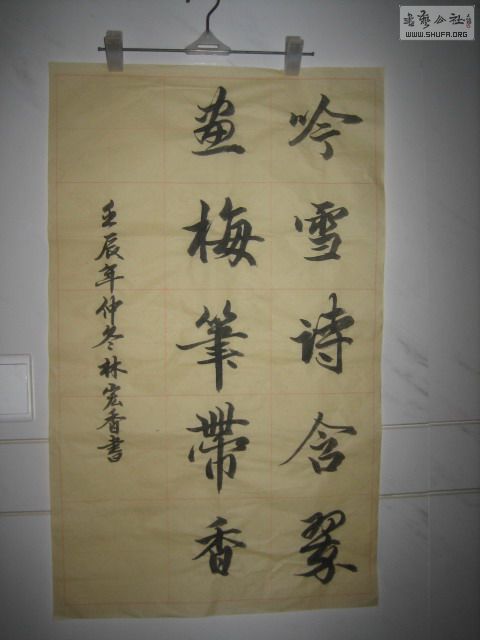 吟雪诗含翠
画梅筆帶香
壬辰年仲冬林宏香書
書藝公社
WWW.SHUFA.ORG